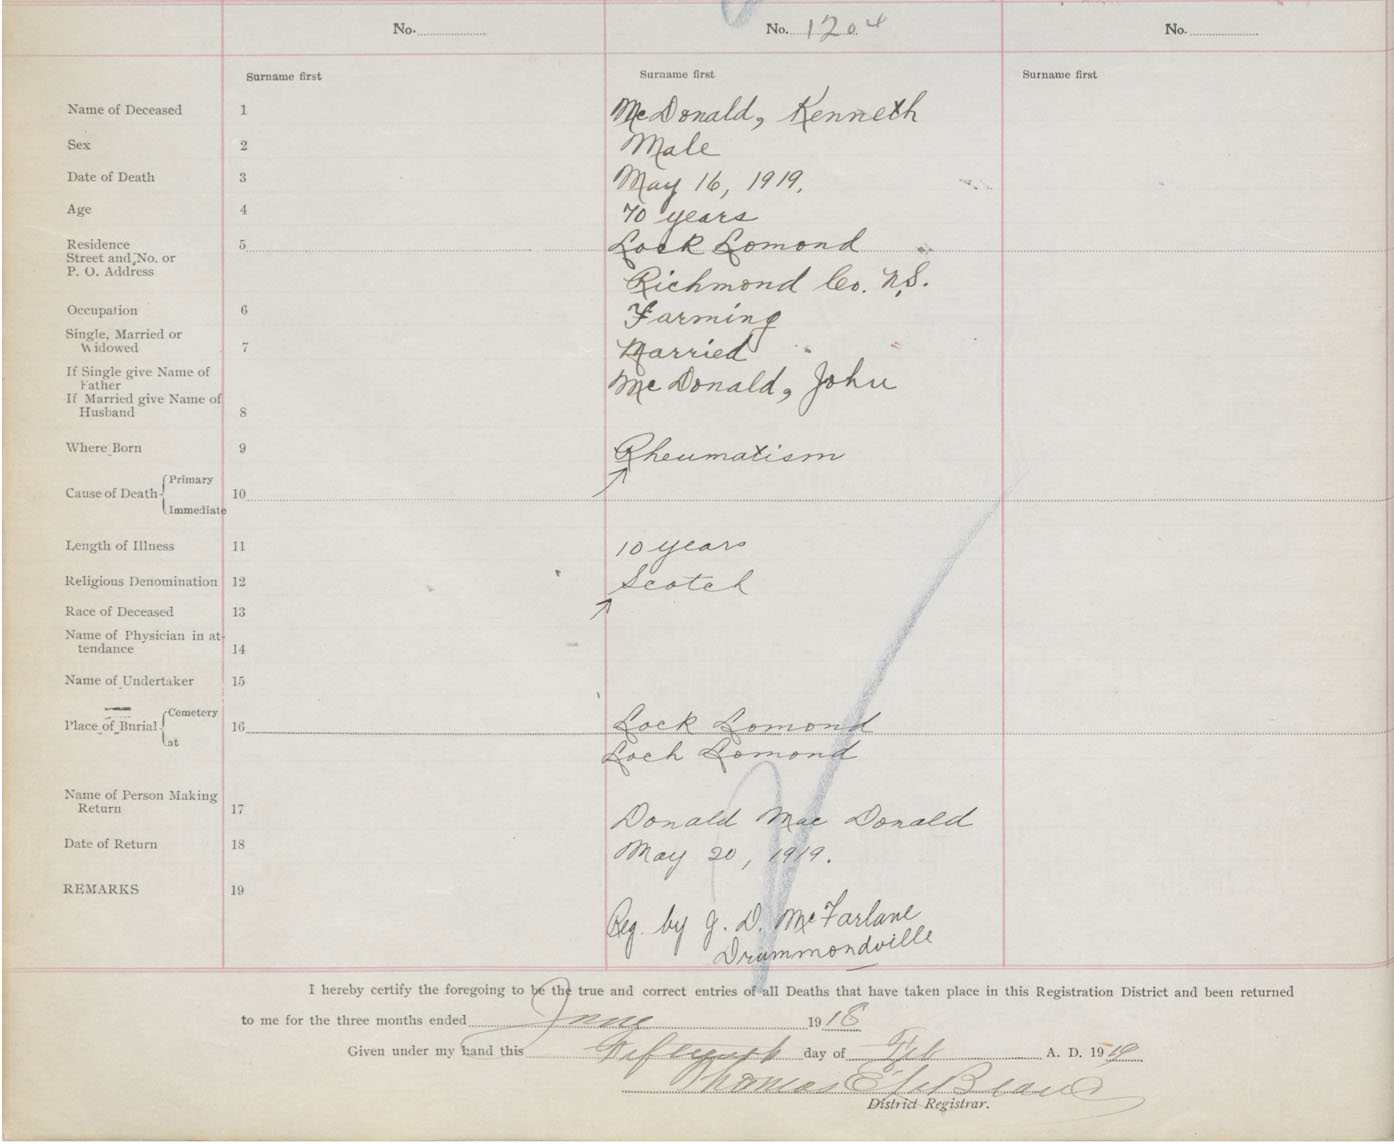 No. No. 1204 No.
Surname first Surname first Surname first
Name of Deceased 1 McDonald, Kenneth
Sex 2 Male
Date of Death 3 May 16, 1919.
Age 4 70 years
Residence 5 Lock Lomond
Street and No. or
P. O. Address Richmond Co. N.S.
Occupation 6 Farming
Single, Married or
Widowed 7 Married
If Single give Name of
Father McDonald, John
If Married give Name of
Husband 8
Where Born 9 Rheumatism
Primary
Cause of Death 10
Immediate
Length of Illness 11 10 years
Religious Denomination 12 Scotch
Race of Deceased 13
Name of Physician in at-
tendance 14
Name of Undertaker 15
Cemetery
Place of Burial 16 Lock Lomond
at Loch Lomond
Name of Person Making
Return 17 Donald Mac Donald
Date of Return 18 May 20, 1919.
REMARKS 19
Reg. by J. D. McFarlane
Drummondville
I hereby certify the foregoing to be the true and correct entries of all Deaths that have taken place in this Registration District and been returned
to me for the three months ended June 1918
Given under my hand this day of Feb A. D. 1919
Thomas E
District Registrar.